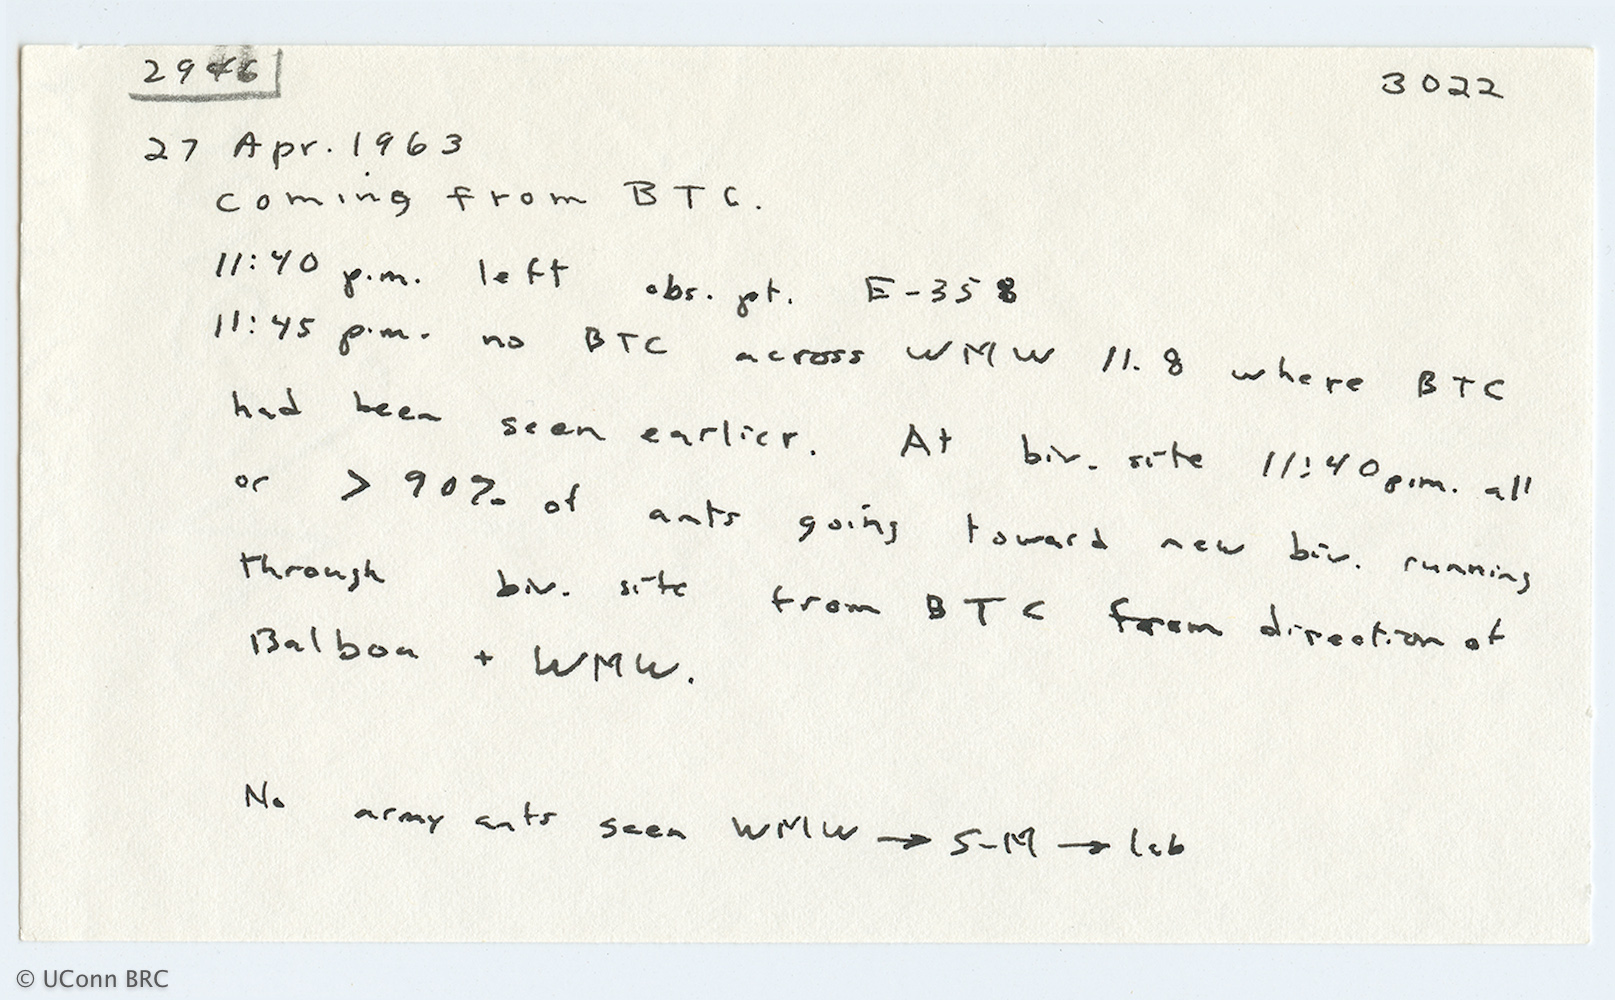 2946 3022
27 Apr. 1963
coming from BTC.
11:40 p.m. left obs. pt. E-358
11:45 p.m. no BTC across WMW 11.8 where BTC
had been seen earlier. At biv. site 11:40 p.m. all
or > 90% of ants going toward new biv. running
through biv. site from BTC from direction of
Balboa + WMW.
No army ants seen WMW → S-M → lab
© UConn BRC